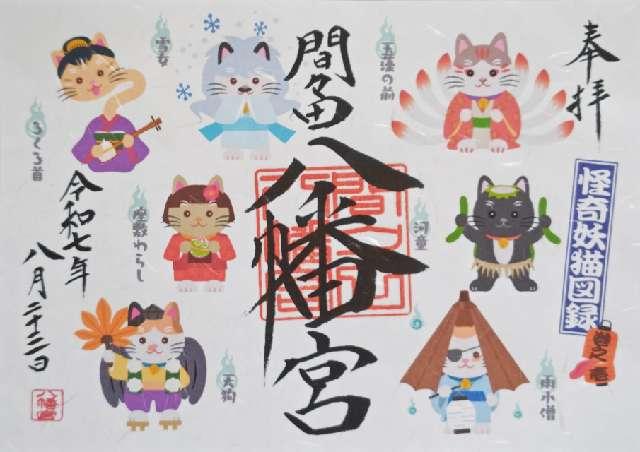 奉拝
怪奇妖猫図録
巻之壱
玉藻の前
河童
雨小僧
間々田八幡宮
雪女
ろくろ首
座敷わらし
天狗
令和七年
八月二十二日
八幡宮